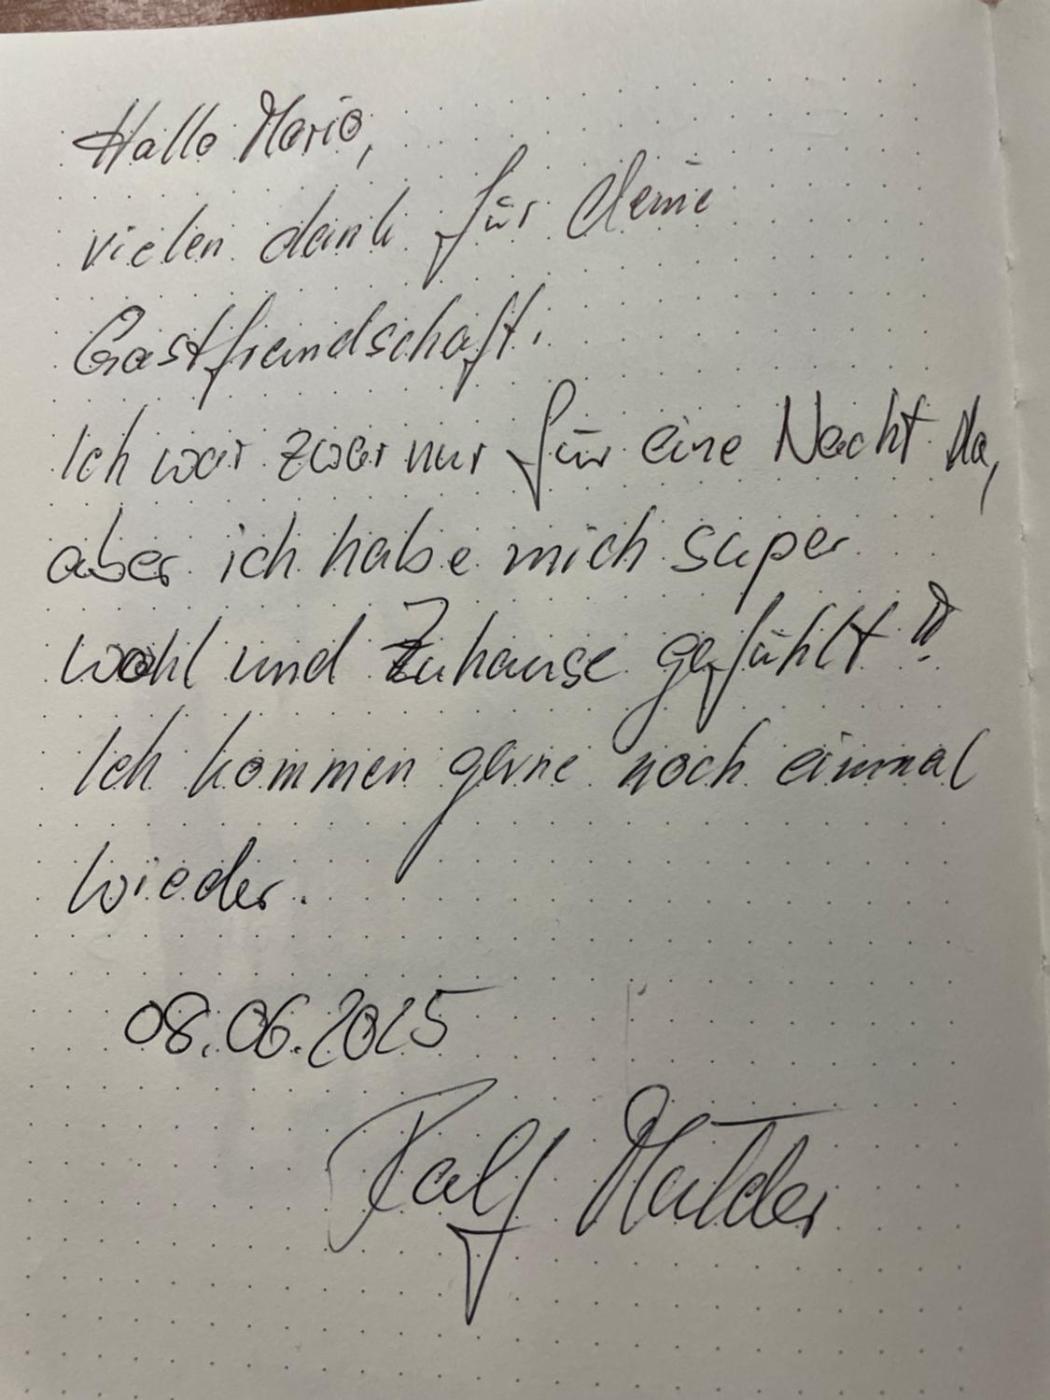 Hallo Mario,
vielen dank für deine
Gastfreundschaft.
Ich war zwar nur für eine Nacht da,
aber ich habe mich super
wohl und Zuhause gefühlt!!
Ich kommen gerne noch einmal
wieder.
08.06.2025
Ralf